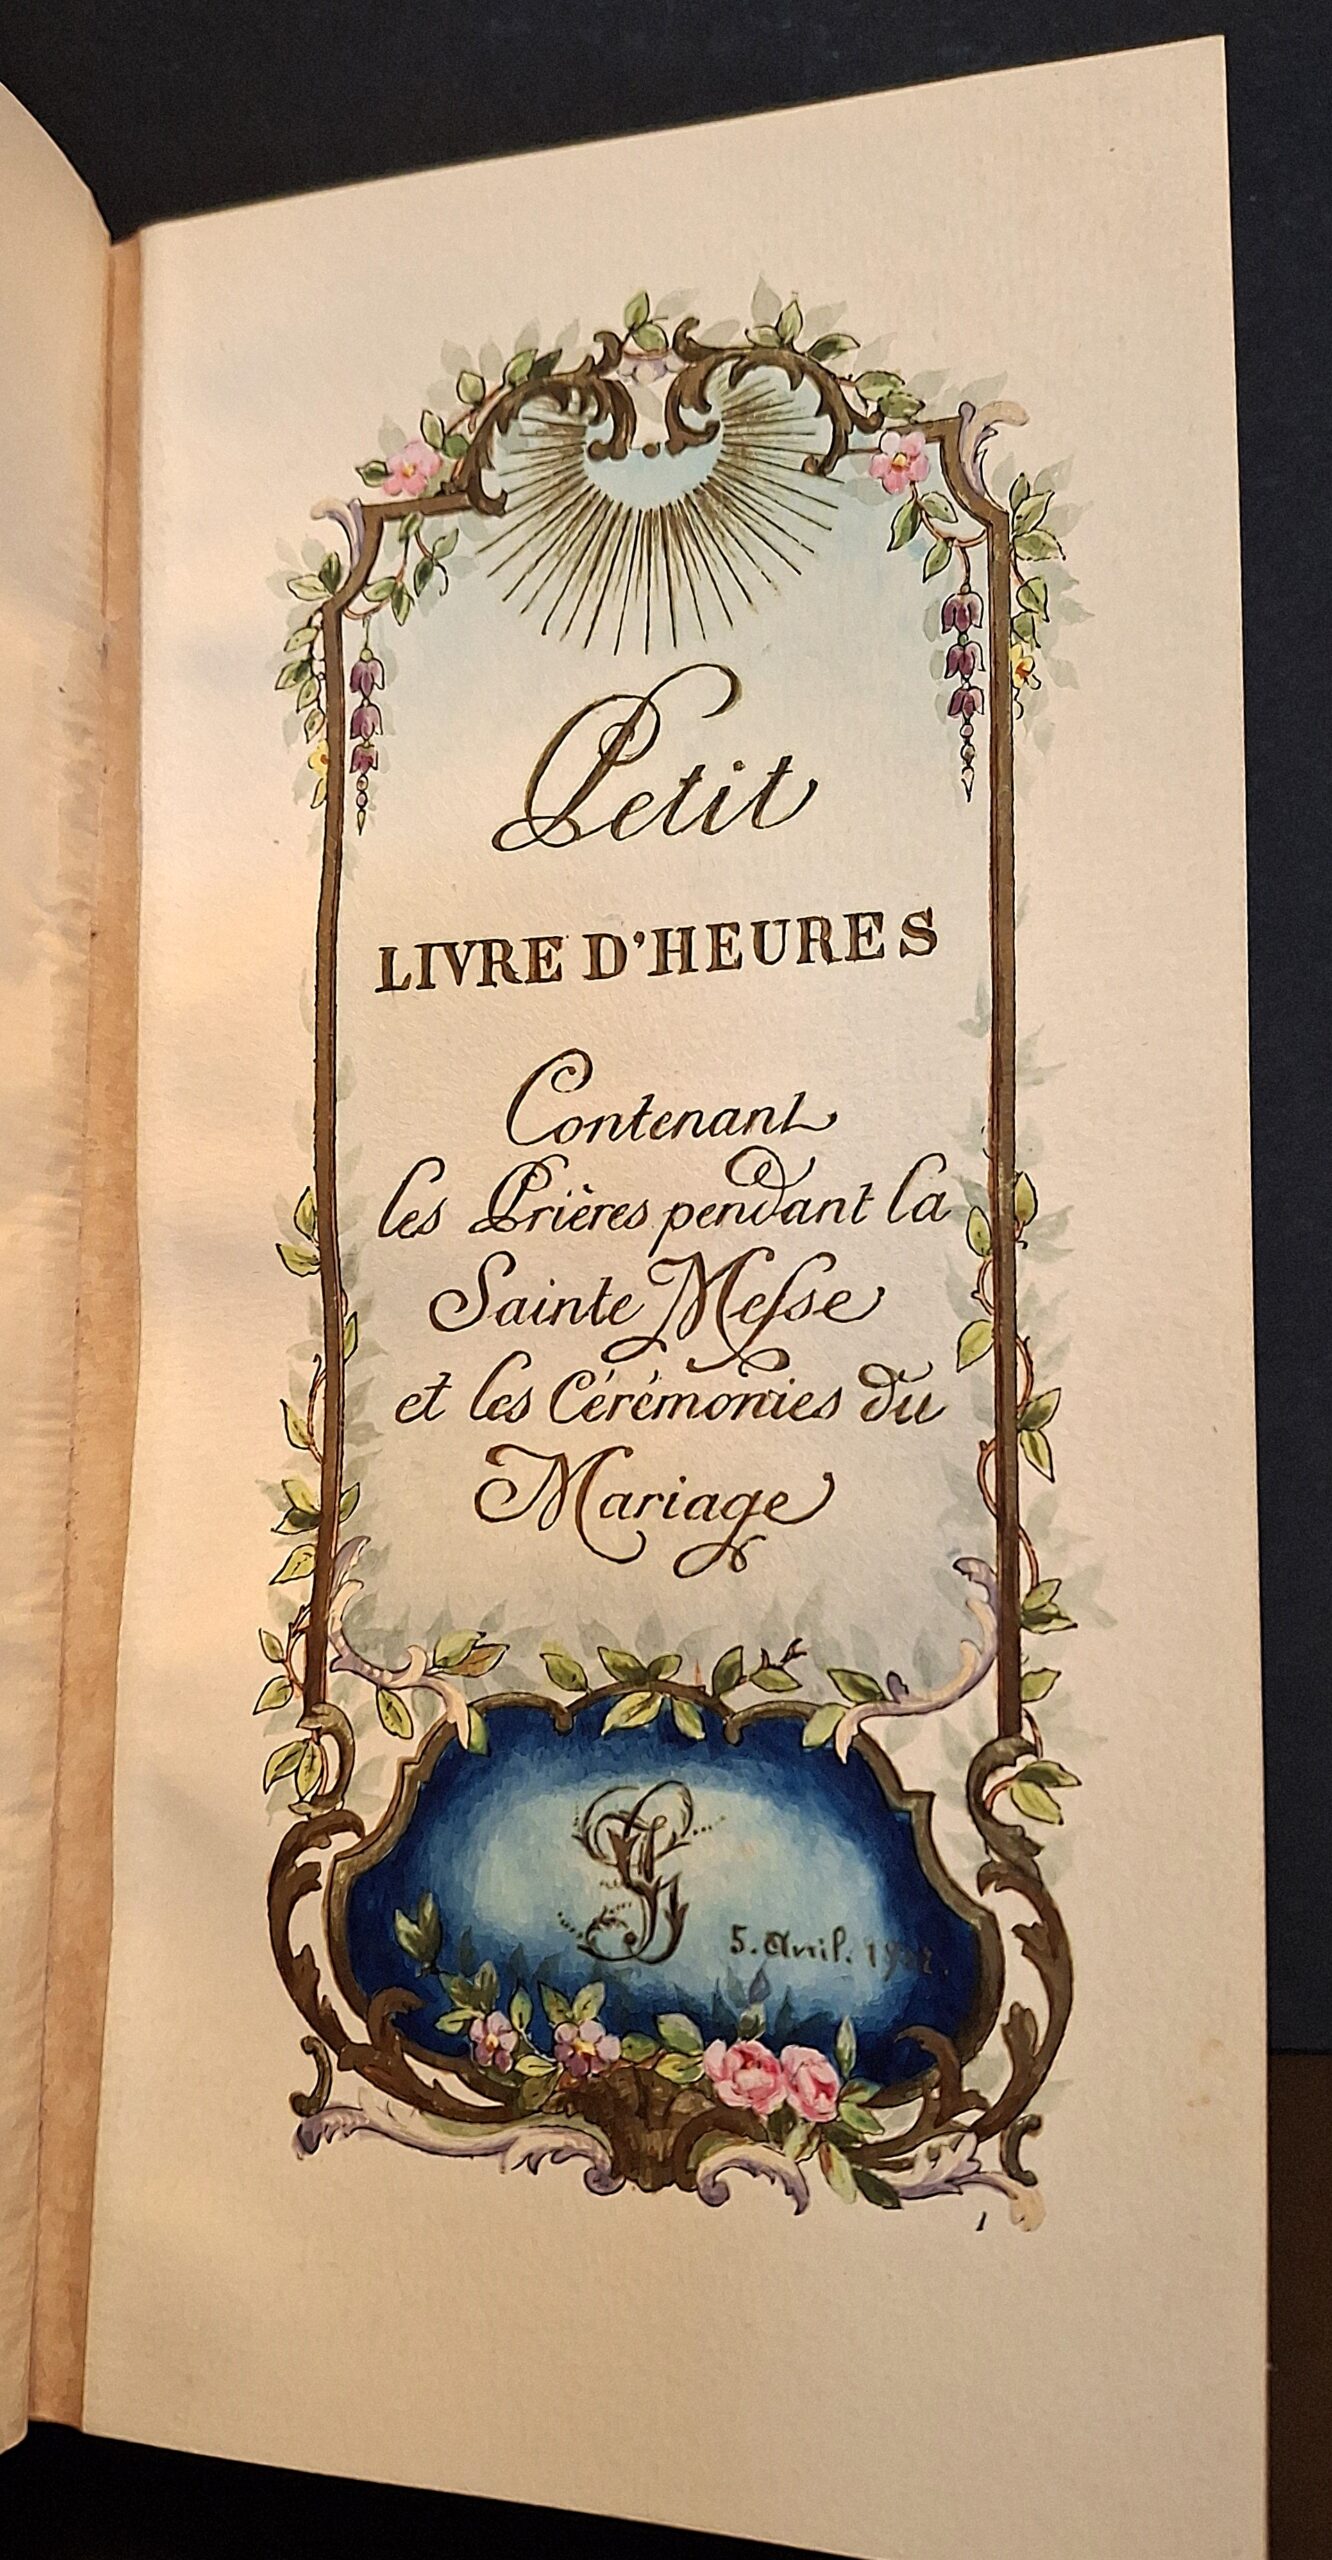 Petit
LIVRE D'HEURES
Contenant
les Prières pendant la
Sainte Meſse
et les Cérémonies du
Mariage
5. Avril.
1